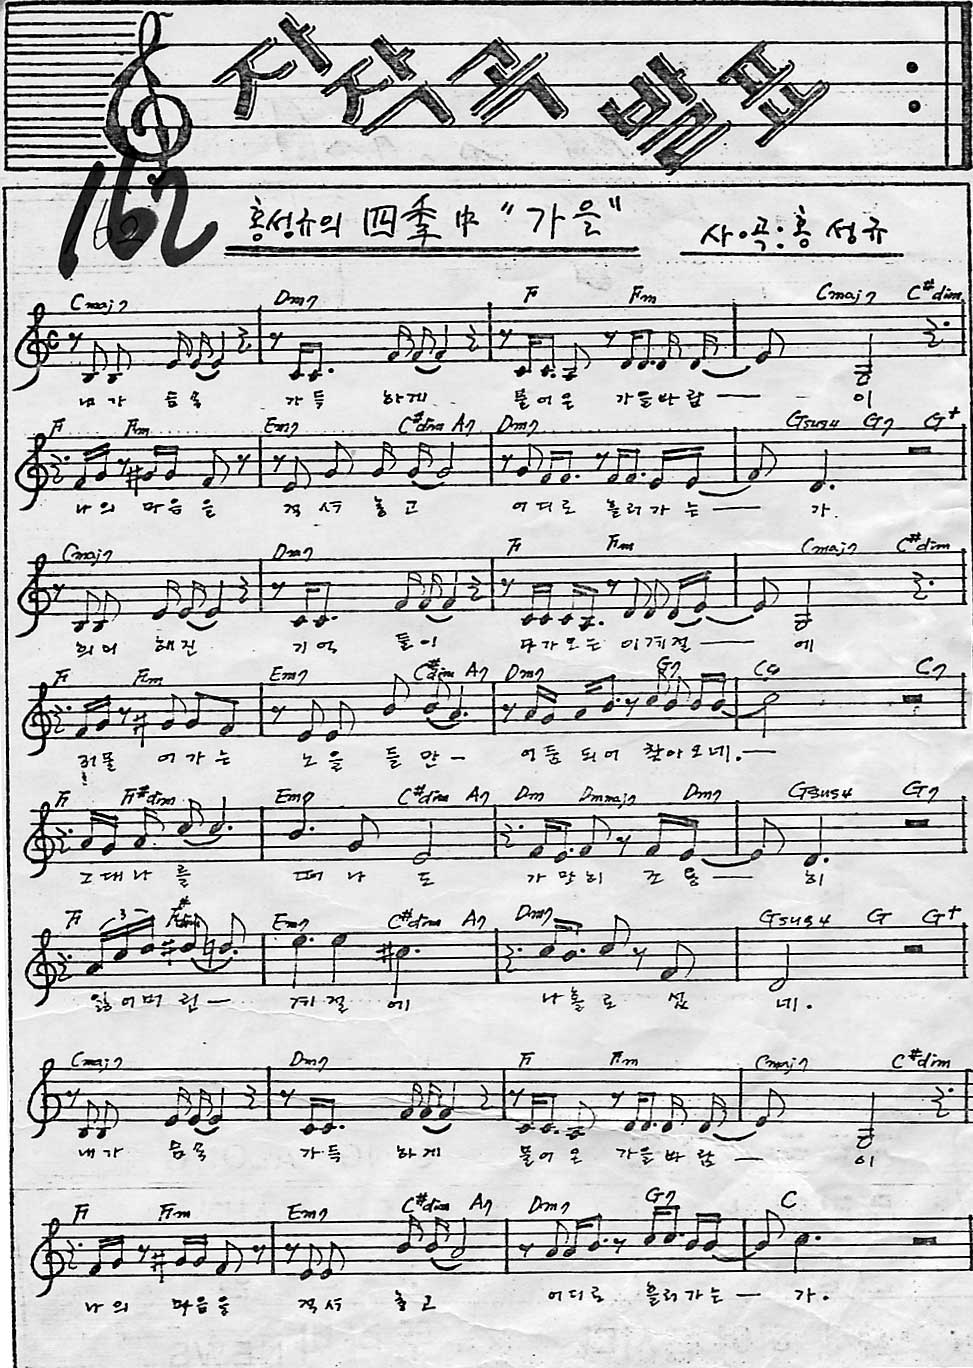 자작곡 발표
162
홍성규의 四季中 "가을" 사·곡:홍성규
Cmaj7 Dm7 F Fm Cmaj7 C#dim
내가 듬속 가득 하게 불어온 가을바람 — 이
F Fm Em7 C#dim A7 Dm7 Gsus4 G7 G+
나의 마음을 적셔 놓고 어디로 흘러가는 — 가.
Cmaj7 Dm7 F Fm Cmaj7 C#dim
희미 해진 기억 들이 다가오는 이계절 — 에
F Fm Em7 C#dim A7 Dm7 G7 C9 C7
저물 어가는 노을 들만 - 어둠 되어 찾아오네. —
F F#dim Em7 C#dim A7 Dm Dmmaj7 Dm7 Gsus4 G7
그대나 를 떠나 도 가만히 조용 — 히
F 3 F#dim Em7 C#dim A7 Dm7 Gsus4 G G+
잃어버린 — 계절 에 나홀로 섰 네.
Cmaj7 Dm7 F Fm Cmaj7 C#dim
내가 듬속 가득 하게 불어온 가을바람 — 이
F Fm Em7 C#dim A7 Dm7 G7 C
나의 마음을 적셔 놓고 어디로 흘러가는 — 가.